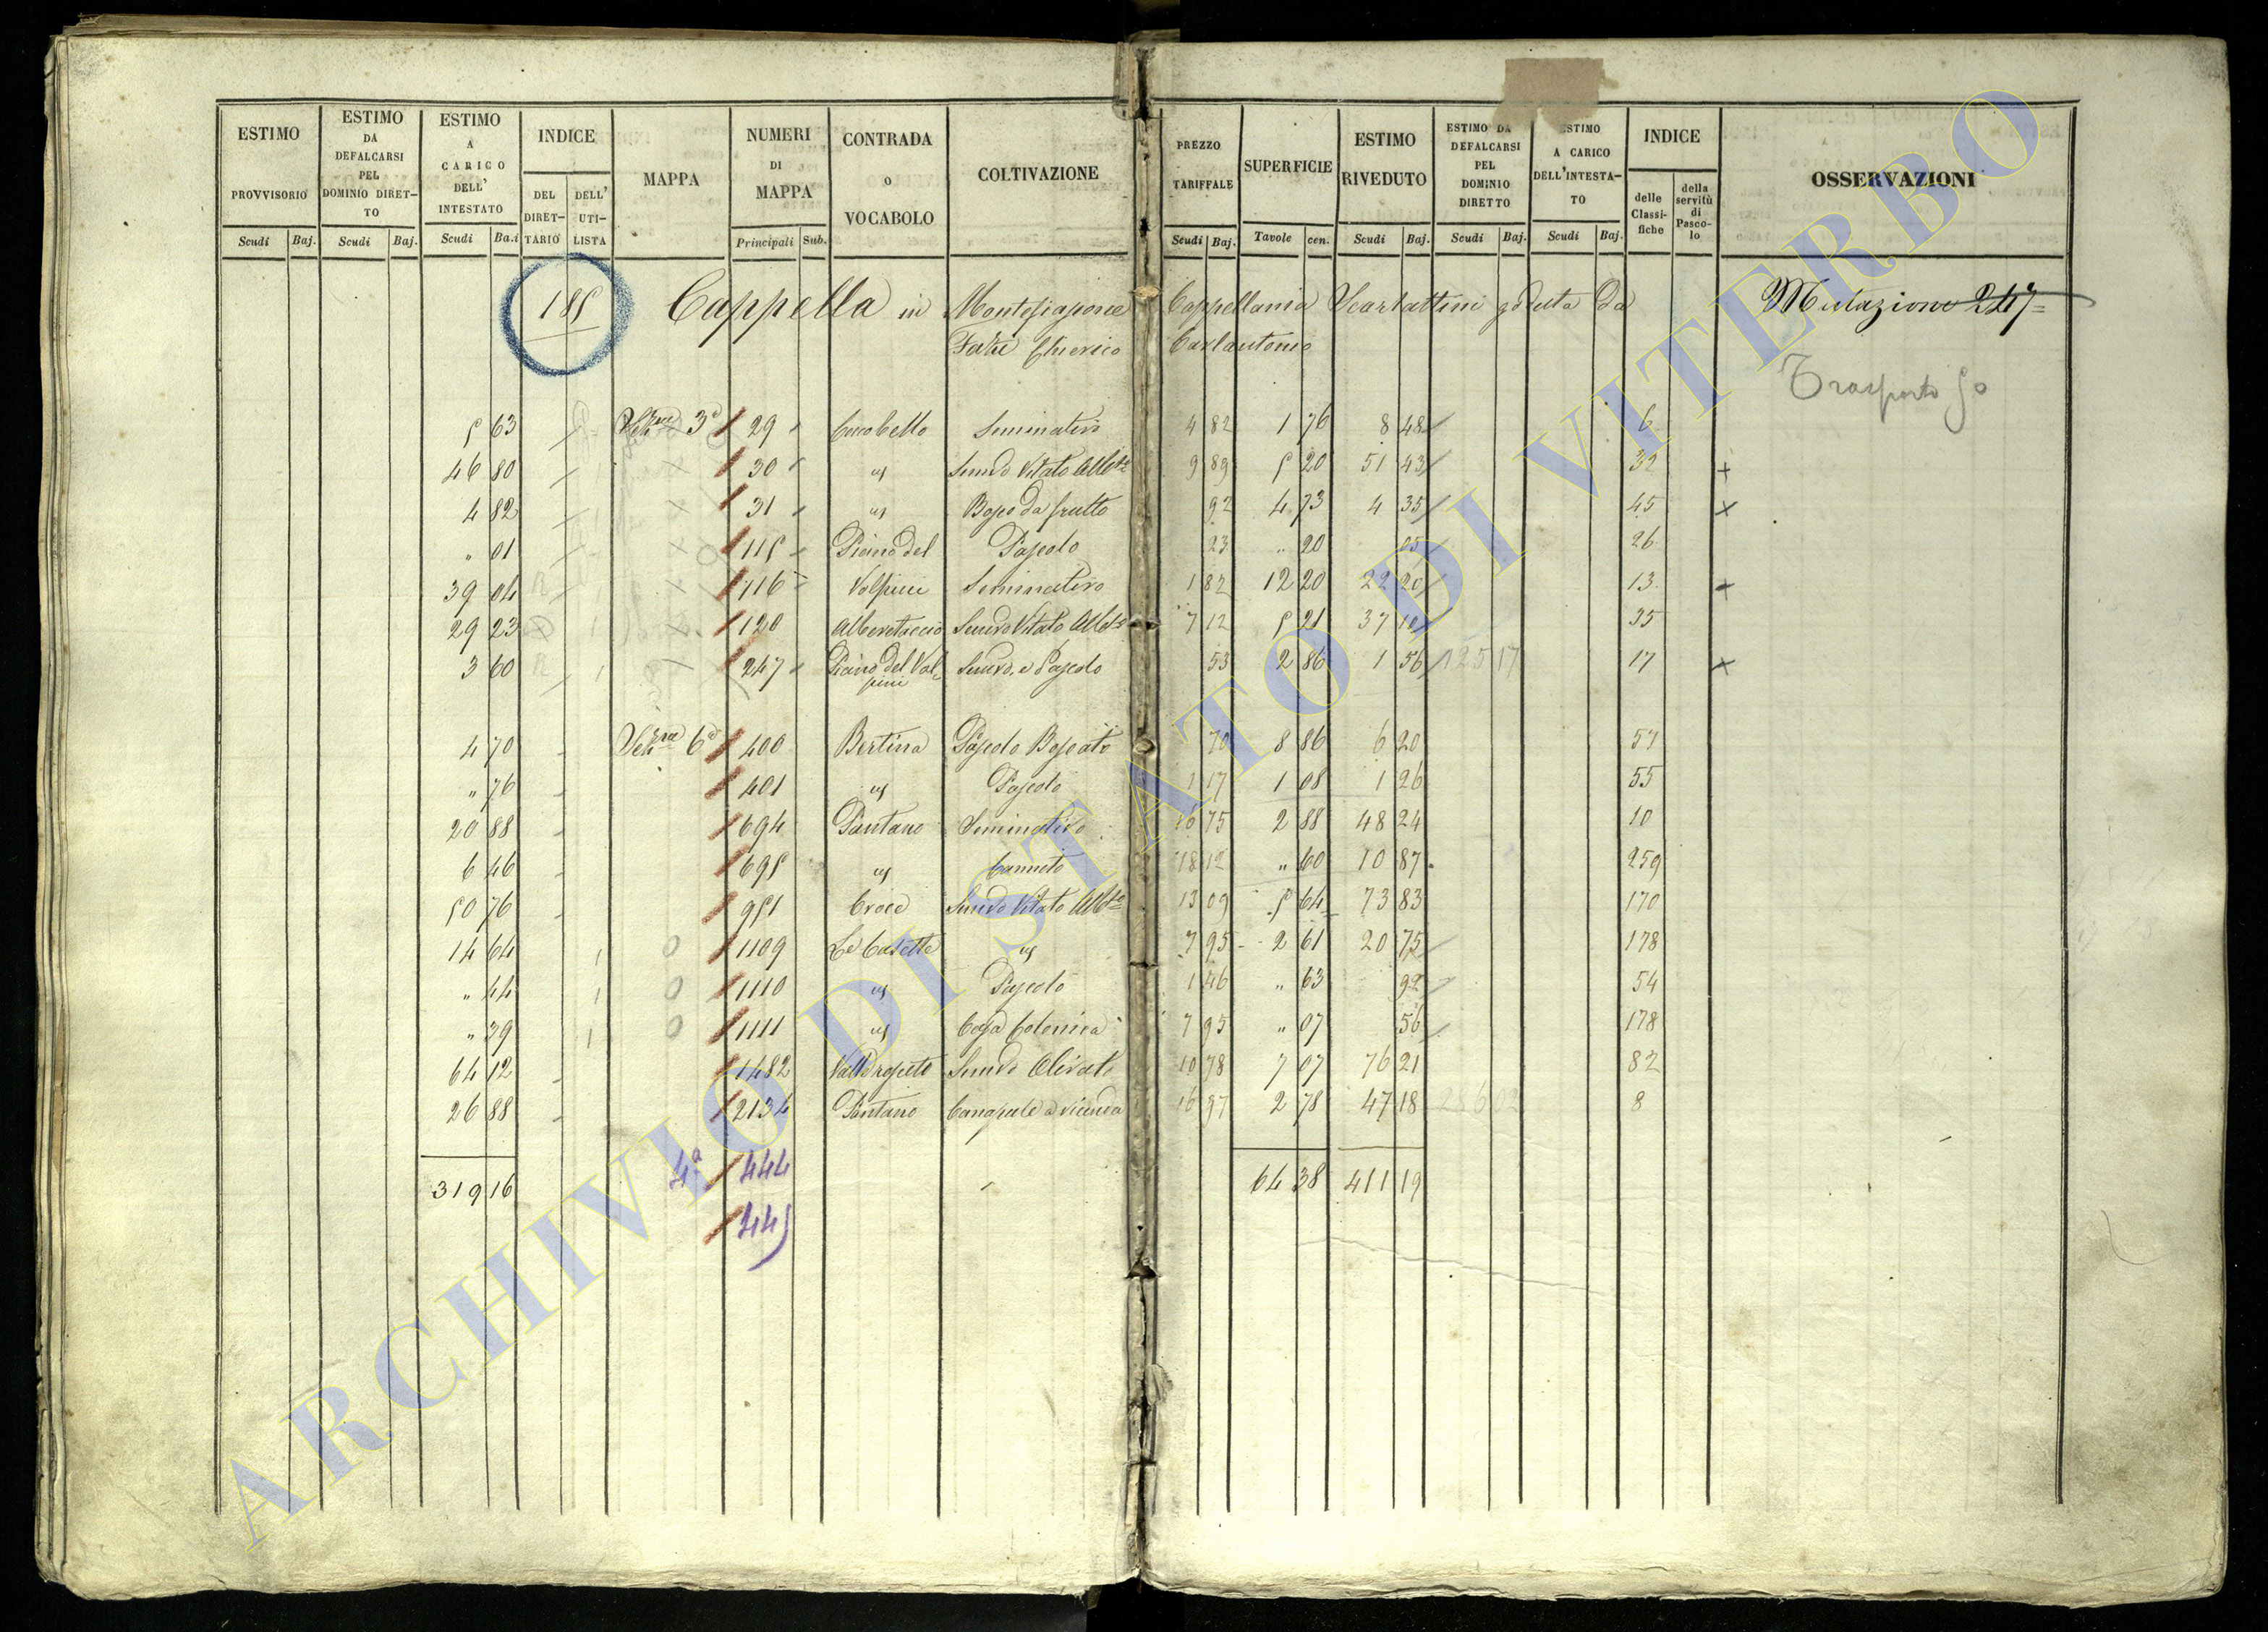 ESTIMO PROVVISORIO Scudi Baj.
ESTIMO DA DEFALCARSI PEL DOMINIO DIRET-TO Scudi Baj.
ESTIMO A CARICO DELL' INTESTATO Scudi Ba.i
INDICE DEL DIRET-TARIO DELL' UTI-LISTA
MAPPA
NUMERI DI MAPPA Principali Sub.
CONTRADA o VOCABOLO
COLTIVAZIONE
PREZZO TARIFFALE Scudi Baj.
SUPERFICIE Tavole cen.
ESTIMO RIVEDUTO Scudi Baj.
ESTIMO DA DEFALCARSI PEL DOMINIO DIRETTO Scudi Baj.
ESTIMO A CARICO DELL'INTESTA-TO Scudi Baj.
INDICE delle Classi-fiche della servitù di Pasco-lo
OSSERVAZIONI
185 Cappella in Montefiascone Cappellania Scarlattini goduta da Mutazione 247
Chierico Carlantonio
Trasporto 50
5 63 3a 29 Seminativo 4 82 1 76 8 48 6
46 80 30 " Semvo Vitato 9 89 5 20 51 43 32
4 82 31 " Bosco da frutto 92 4 73 4 35 45
" 01 115 Piano del Pascolo 23 " 20 05 26
39 04 116 Volpini Seminativo 1 82 12 20 22 20 13
29 23 120 Alberetaccio Semvo Vitato 7 12 5 21 37 10 35
3 60 247 Piano del Vol-pini Semvo, e Pascolo 53 2 86 1 56 125 17 17
4 70 6a 400 Bertina Pascolo Boscato 70 8 86 6 20 57
" 76 401 " Pascolo 1 17 1 08 1 26 55
20 88 694 Pantano Seminativo 16 75 2 88 48 24 10
6 46 695 " Canneto 18 12 " 60 10 87 259
50 76 951 Croce Semvo Vitato 13 09 5 64 73 83 170
14 64 1109 Le Casette " 7 95 2 61 20 75 178
" 44 1110 " Pascolo 1 46 " 63 92 54
" 39 1111 " Casa Colonica 7 95 " 07 56 178
64 12 1482 Semvo Olivato 10 78 7 07 76 21 82
26 88 2134 Pantano Canapule a vicenda 16 97 2 78 47 18 286 02 8
319 16 4a 444 64 38 411 19
445
ARCHIVIO DI STATO DI VITERBO